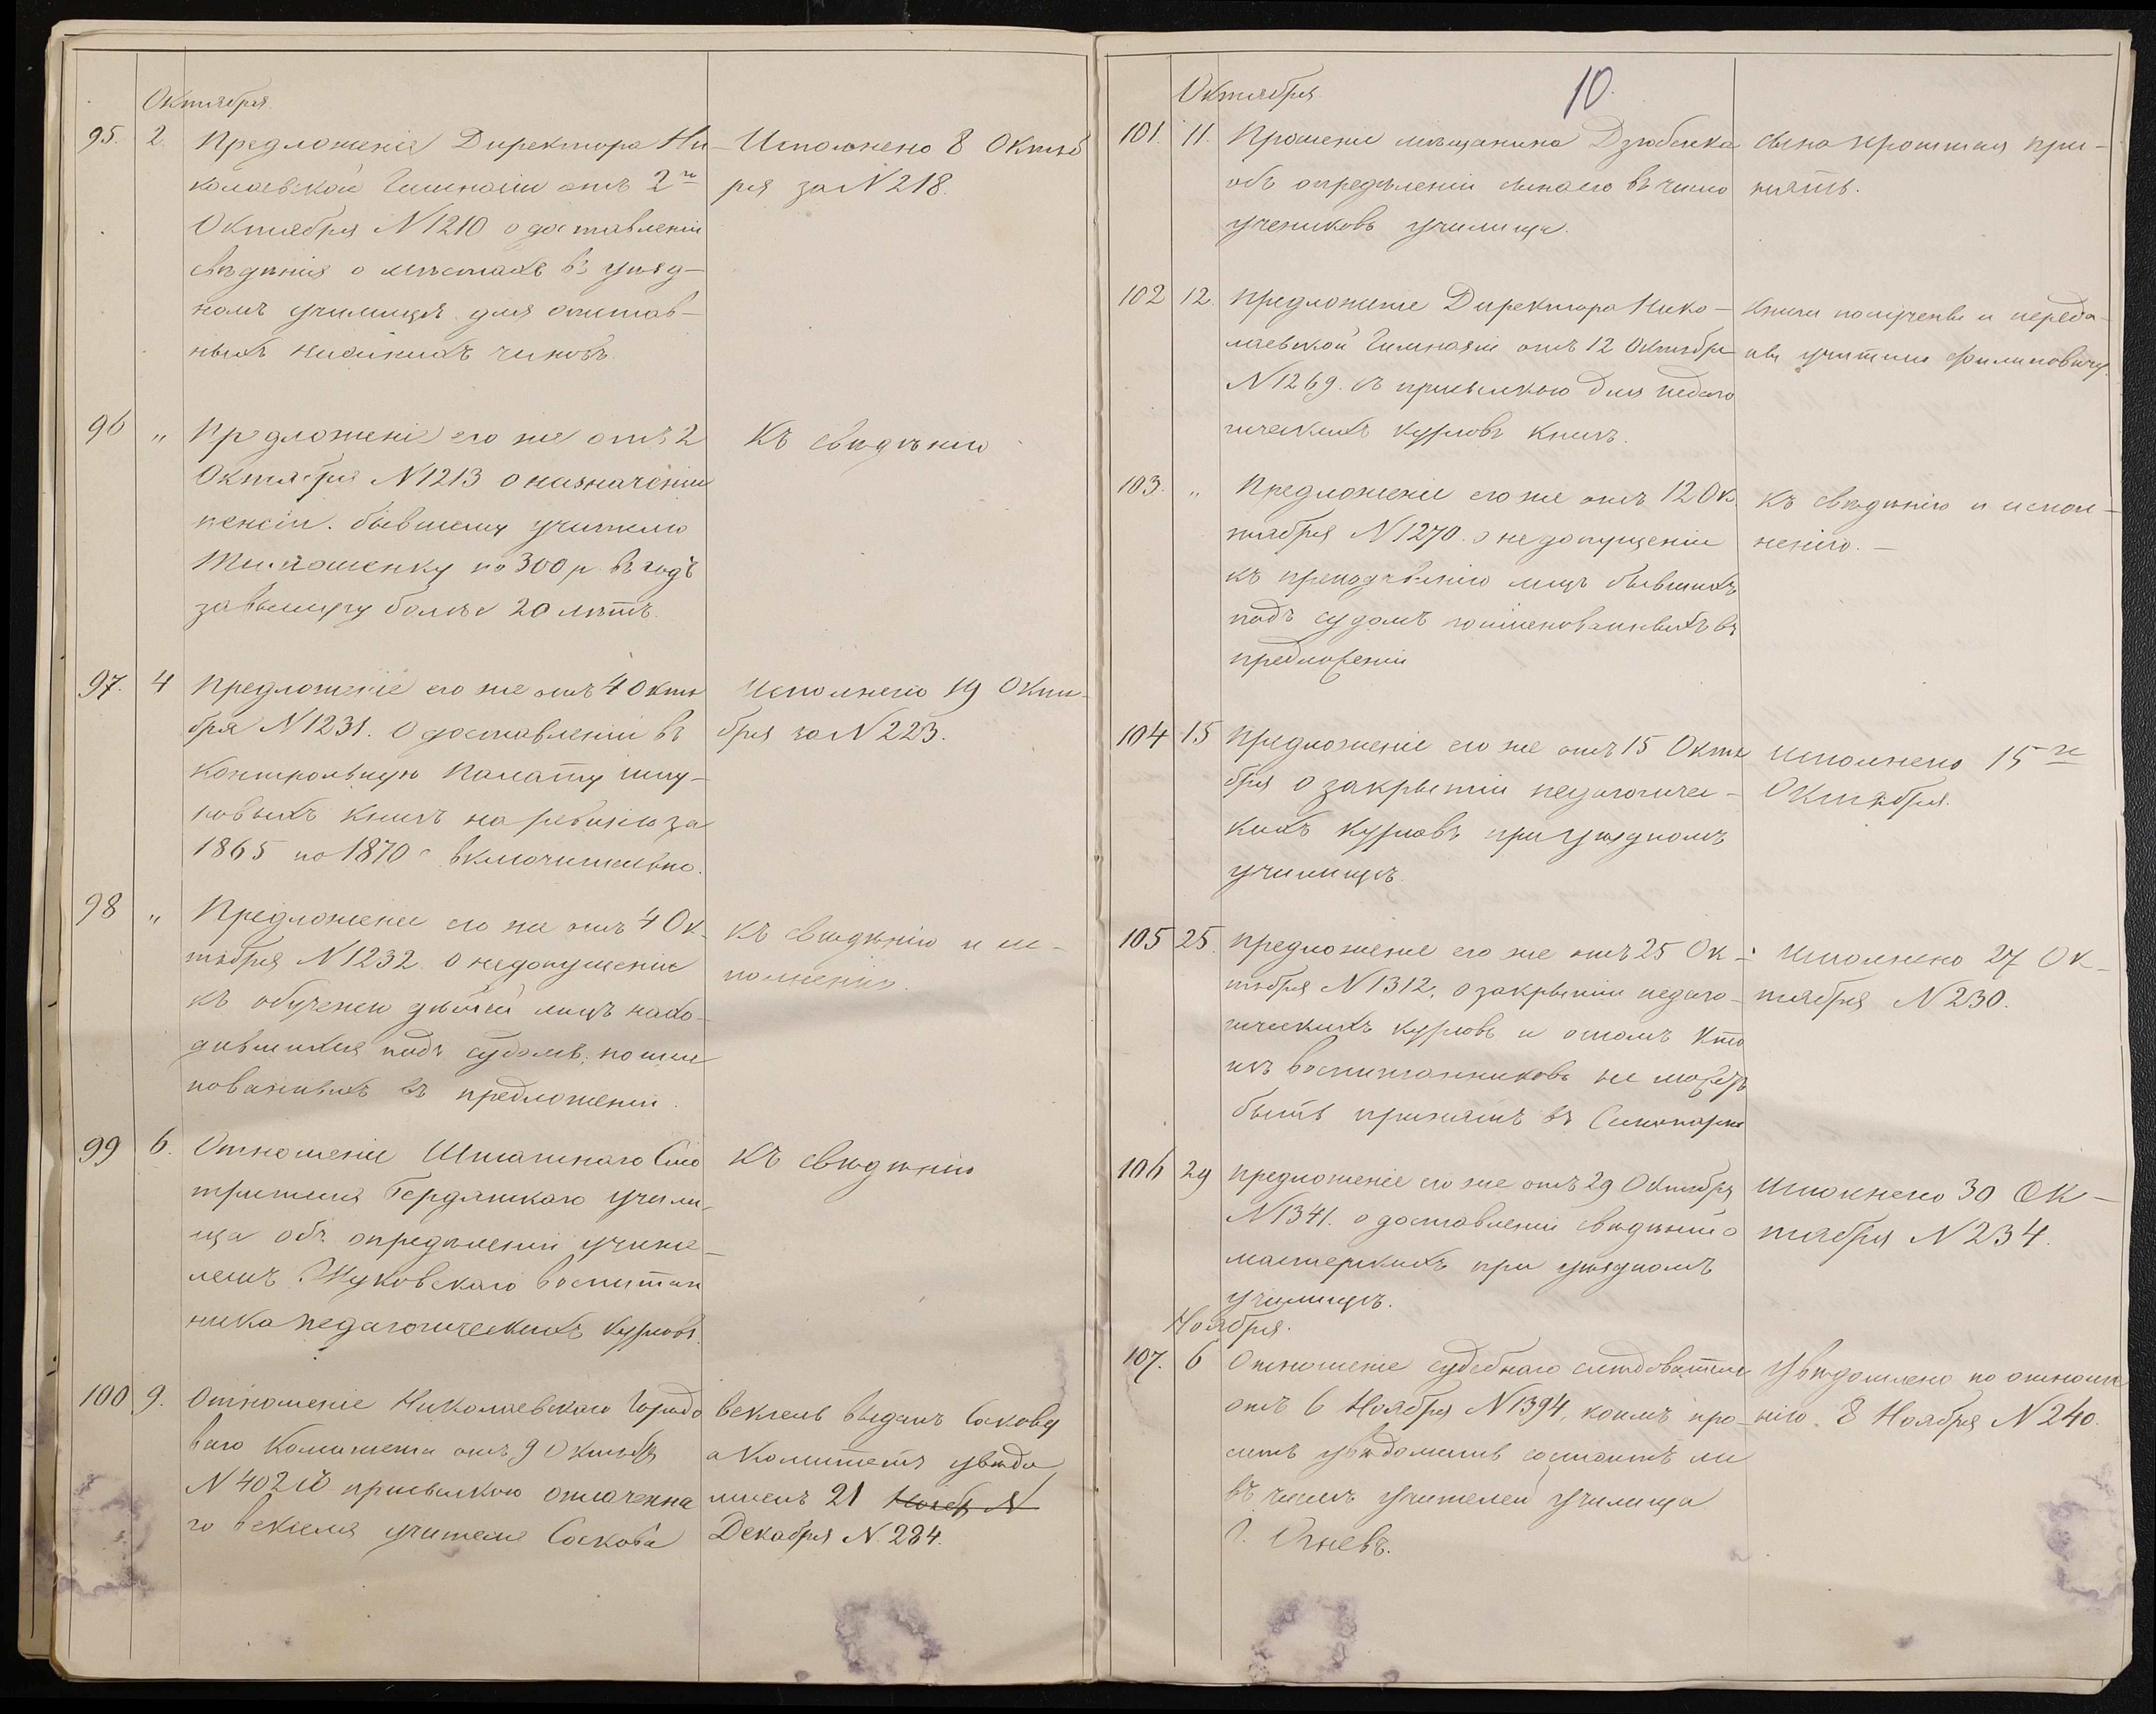 Октября.
95. 2. Предложеніе Директора Ни-
колаевской Гимназіи отъ 2го
Октября N 1210 о доставленіи
свѣдѣнія о мѣстахъ въ уѣзд-
номъ училищѣ для отстав-
ныхъ нижнихъ чиновъ.
Исполнено 8 Октяб
ря за N 218.
96 „ Предложеніе его же отъ 2
Октября N 1213 о назначеніи
пенсіи бывшему учителю
Тимошенку по 300 р. въ годъ
за выслугу болѣе 20 лѣтъ.
Къ свѣдѣнію
97. 4 Предложеніе его же отъ 4 Октя
бря N 1231. О доставленіи въ
Контрольную Палату шну-
ровыхъ книгъ на ревизію за
1865 по 1870 г включительно.
Исполнено 19 Октя-
бря за N 223.
98 „ Предложеніе его же отъ 4 Ок-
тября N 1232. о недопущеніи
къ обученію дѣтей лицъ нахо-
дившихся подъ судомъ, поиме
нованныхъ въ предложеніи.
Къ свѣдѣнію и ис-
полненію.
99 6. Отношеніе Штатнаго Смо
трителя Бердянскаго учили-
ща объ опредѣленіи учите-
лемъ Жуковскаго воспитан
ника педагогическихъ курсовъ.
Къ свѣдѣнію
100 9. Отношеніе Николаевскаго Городо
ваго Комитета отъ 9 Октября
N 402 съ присылкою оплаченна
го векселя учителя Соскова
Вексель выданъ Соскову
а Комитетъ увѣдо
мленъ 21 Ноябр N
Декабря N 284.
10.
Октября.
101. 11. Прошеніе мѣщанина Дзюбенка
объ опредѣленіи сына его въ число
учениковъ училища.
Сына просителя при-
нять.
102 12. Предложеніе Директора Нико-
лаевской Гимназіи отъ 12 Октября
N 1269. съ присылкою для педаго
гическихъ курсовъ книгъ.
Книги получены и переда-
ны учителю Филиповичу.
103. „ Предложеніе его же отъ 12 Ок
тября N 1270. о недопущеніи
къ преподаванію лицъ бывшихъ
подъ судомъ поименованныхъ въ
предложеніи
Къ свѣдѣнію и испол-
ненію. —
104 15 Предложеніе его же отъ 15 Октя
бря о закрытіи педагогичес-
кихъ курсовъ при уѣздномъ
училищѣ.
Исполнено 15го
Октября.
105 25. Предложеніе его же отъ 25 Ок-
тября N 1312, о закрытіи педаго-
гическихъ курсовъ и о томъ кто
изъ воспитанниковъ не можетъ
быть принятъ въ Семинарію
Исполнено 27 Ок-
тября N 230.
106 29 Предложеніе его же отъ 29 Октября
N 1341. о доставленіи свѣдѣній о
мастерскихъ при уѣздномъ
училищѣ.
Исполнено 30 Ок-
тября N 234.
Ноября.
107. 6 Отношеніе судебнаго слѣдователя
отъ 6 Ноября N 1394, коимъ про-
ситъ увѣдомить состоитъ ли
въ числѣ учителей училища
Г. Огневъ.
Увѣдомлено по отноше
нію 8 Ноября N 240.